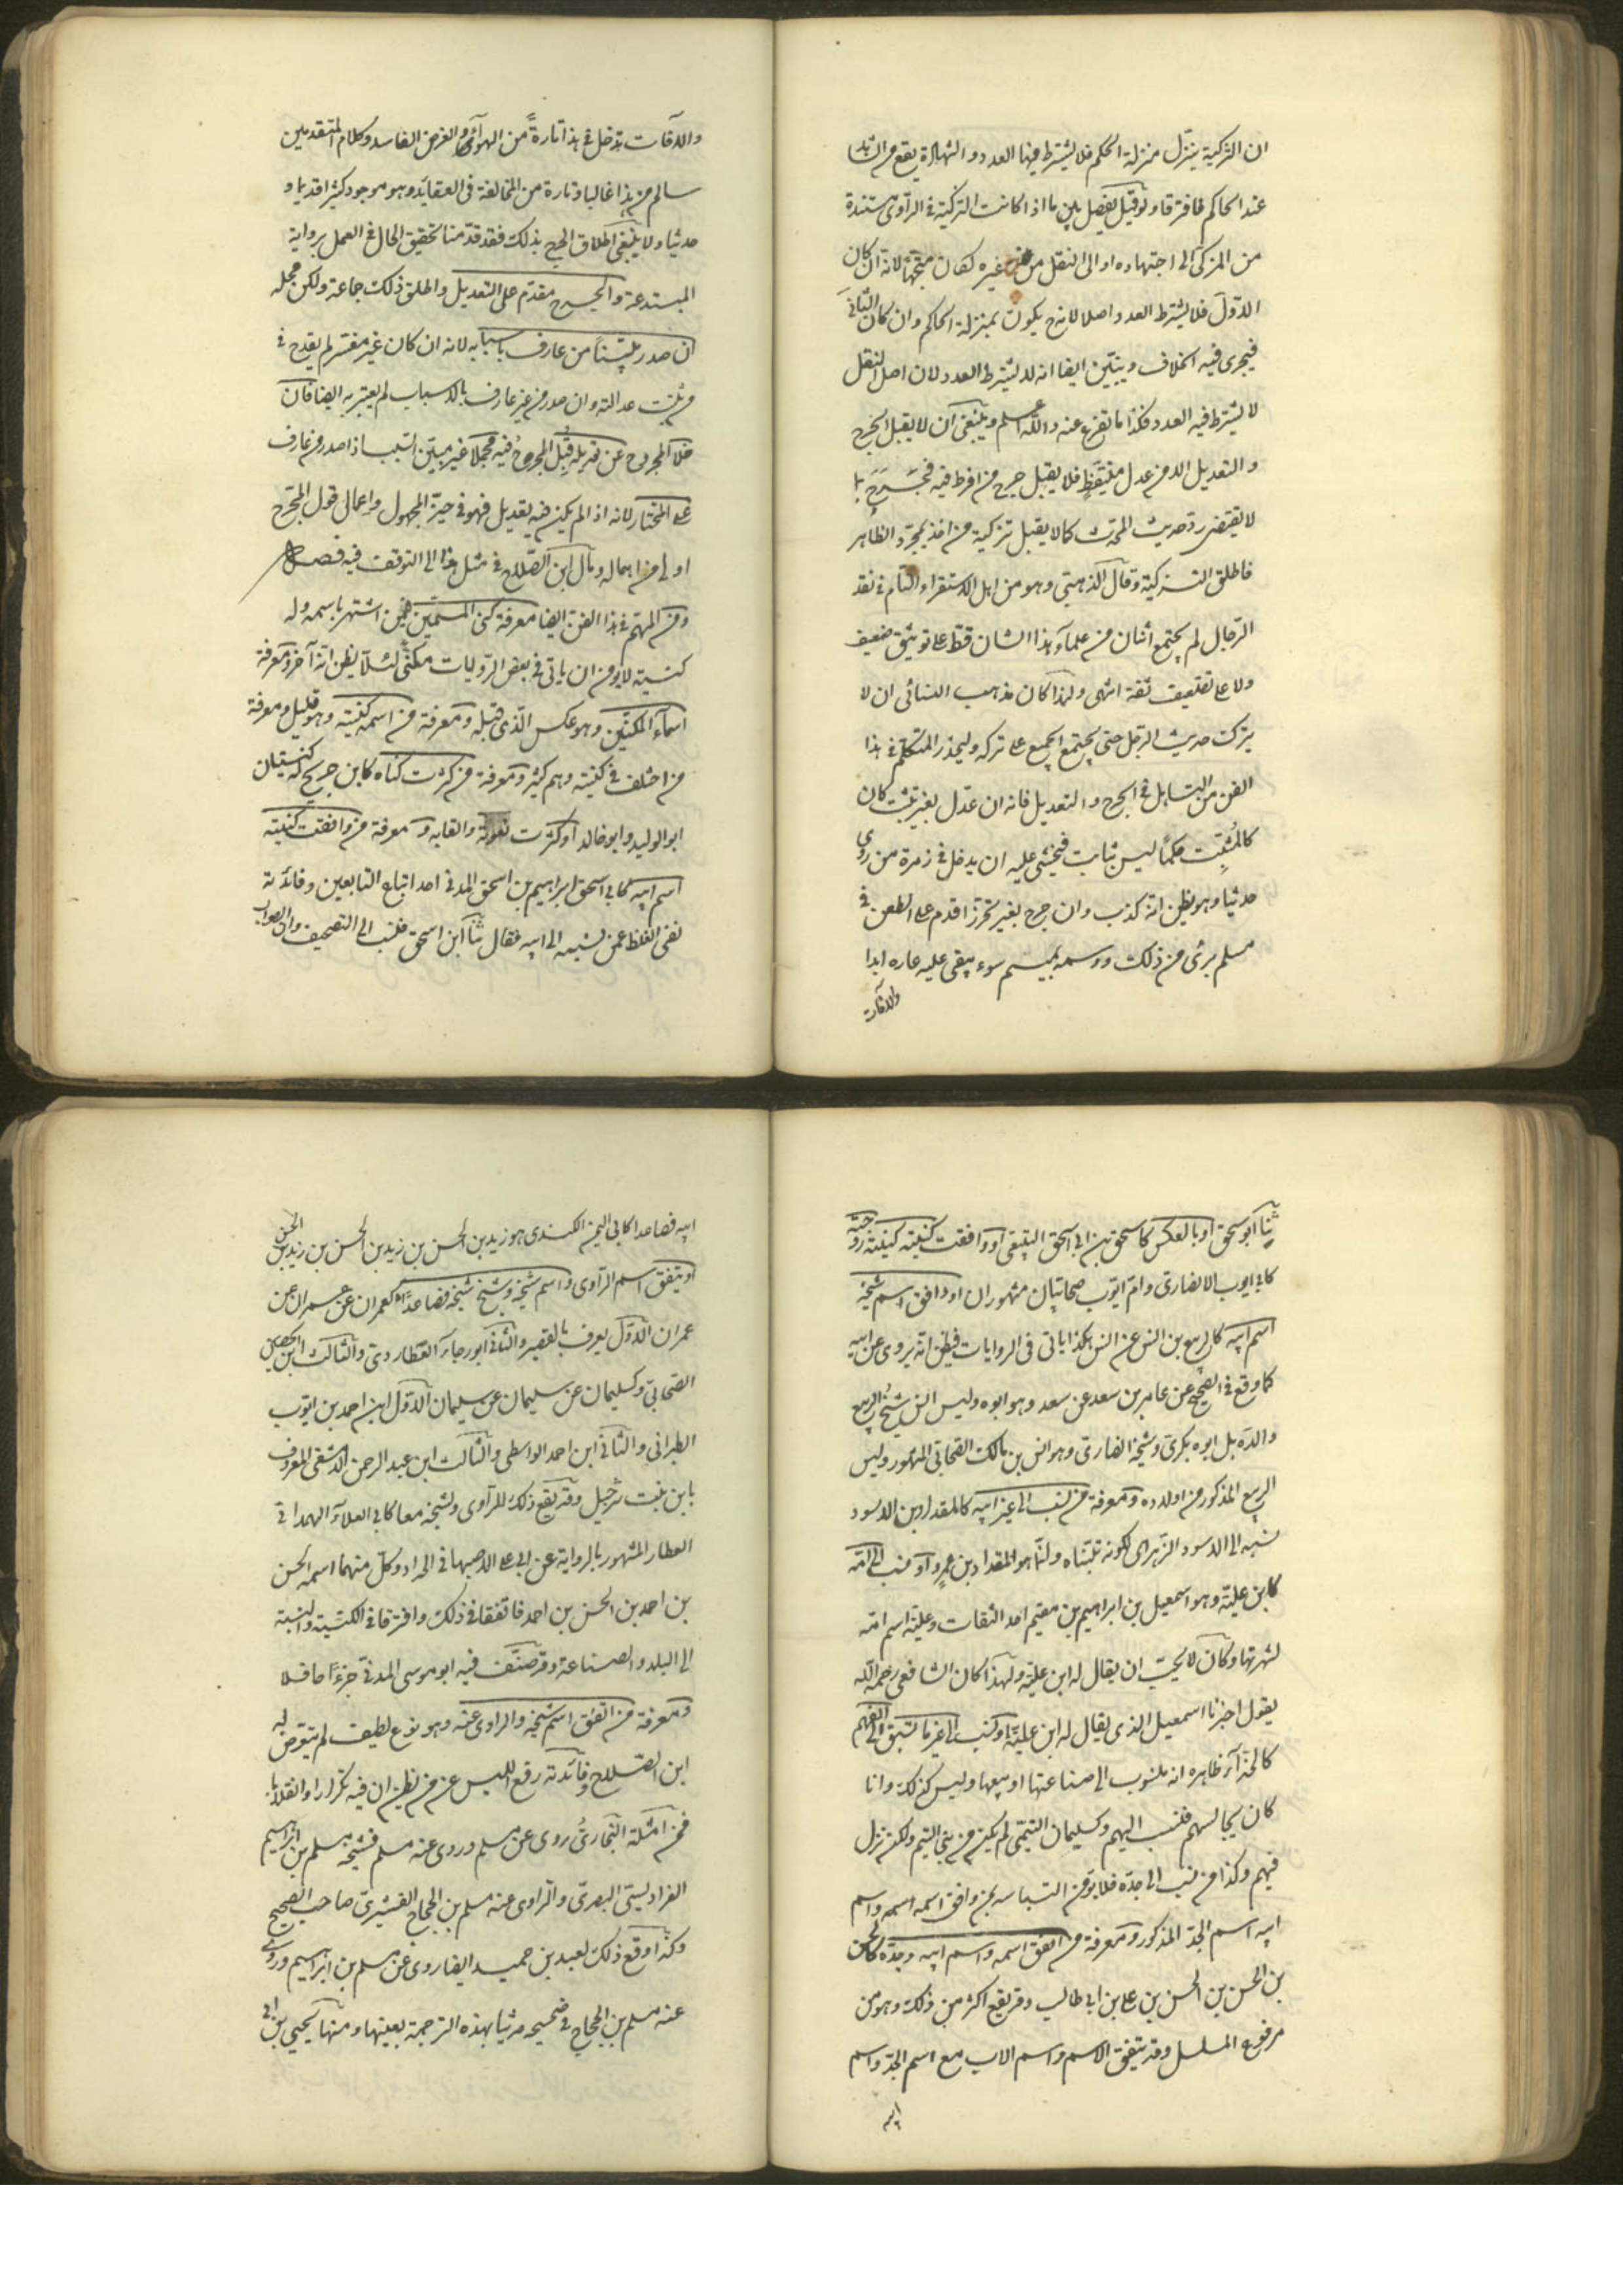 ان التزكية ينزل منزلة الحكم فلا يشترط فيها العدد والشهادة يقع من الشاهد
عند الحاكم فافترقا ولو قيل يفصل بين ما اذا كانت التزكية في الراوى مستندة
من المزكى الى اجتهاده او الى النقل من غيره لكان متجها لانه ان كان
الاول فلا يشترط العدد اصلا لانه ح يكون بمنزلة الحاكم وان كان الثانى
فيجرى فيه الخلاف ويتبين ايضا انه لا يشترط العدد لان اصل النقل
لا يشترط فيه العدد فكذا ما تفرع عنه والله اعلم وينبغى ان لا يقبل الجرح
والتعديل الا من عدل متيقظ فلا يقبل جرح من افرط فيه فجرح بما
لا يقتضى رد حديث المحدث كما لا يقبل تزكية من اخذ بمجرد الظاهر
فاطلق التزكية وقال الذهبى وهو من اهل الاستقراء التام فى نقد
الرجال لم يجتمع اثنان من علماء هذا الشان قط على توثيق ضعيف
ولا على تضعيف ثقة انتهى ولهذا كان مذهب النسائى ان لا
يترك حديث الرجل حتى يجتمع الجميع على تركه وليحذر المتكلم فى هذا
الفن من التساهل فى الجرح والتعديل فانه ان عدل بغير تثبت كان
كالمثبت حكما ليس بثابت فيخشى عليه ان يدخل فى زمرة من روى
حديثا وهو يظن انه كذب وان جرح بغير تحرز اقدم على الطعن فى
مسلم برئ من ذلك ووسمه بميسم سوء يبقى عليه عاره ابدا
والآفات
والآفات تدخل فى هذا تارة من الهوى والغرض الفاسد وكلام المتقدمين
سالم من هذا غالبا وتارة من المخالفة فى العقائد وهو موجود كثيرا قديما و
حديثا ولا ينبغى اطلاق الجرح بذلك فقد قدمنا تحقيق الحال فى العمل برواية
المبتدعة والجرح مقدم على التعديل واطلق ذلك جماعة ولكن محله
ان صدر مبينا من عارف باسبابه لانه ان كان غير مفسر لم يقدح فى
من ثبت عدالته وان صدر من غير عارف بالاسباب لم يعتبر به ايضا فان
خلا المجروح عن تعديل قبل المجروح فيه مجملا غير مبين السبب اذا صدر من عارف
على المختار لانه اذا لم يكن فيه تعديل فهو فى حيز المجهول واعمال قول المجرح
اولى من اهماله ومال ابن الصلاح فى مثل هذا الى التوقف فيه فصل
ومن المهم فى هذا الفن ايضا معرفة كنى المسمين ممن اشتهر باسمه وله
كنية لا يؤمن ان ياتى فى بعض الروايات مكنى لئلا يظن انه آخر ومعرفة
اسماء المكنين وهو عكس الذى قبله ومعرفة من اسمه كنيته وهو قليل ومعرفة
من اختلف فى كنيته وهم كثير ومعرفة من كثرت كناه كابن جريج له كنيتان
ابو الوليد وابو خالد او كثرت نعوته والقابه ومعرفة من وافقت كنيته
اسم ابيه كابى اسحق ابراهيم بن اسحق المدنى احد اتباع التابعين وفائدته
نفى الغلط عمن نسبه الى ابيه فقال ثنا ابن اسحق فنسب الى التصحيف وان الصواب
ثنا ابو اسحق او بالعكس كاسحق بن ابى اسحق السبيعى او وافقت كنيته كنية زوجته
كابى ايوب الانصارى وام ايوب صحابيان مشهوران او وافق اسم شيخه
اسم ابيه كالربيع بن انس عن انس هكذا ياتى فى الروايات فيظن انه يروى عن ابيه
كما وقع فى الصحيح عن عامر بن سعد عن سعد وهو ابوه وليس انس شيخ الربيع
والده بل ابوه بكرى وشيخه انصارى وهو انس بن مالك الصحابى المشهور وليس
الربيع المذكور من اولاده ومعرفة من نسب الى غير ابيه كالمقداد بن الاسود
نسبه الى الاسود الزهرى لكونه تبناه وانما هو المقداد بن عمرو او نسب الى امه
كابن علية وهو اسمعيل بن ابراهيم بن مقسم احد الثقات وعلية اسم امه
اشتهر بها وكان لا يحب ان يقال له ابن علية ولهذا كان الشافعى رحمه الله
يقول اخبرنا اسمعيل الذى يقال له ابن علية او نسب الى غير ما يسبق الى الفهم
كالحذاء ظاهره انه منسوب الى صناعتها او بيعها وليس كذلك وانما
كان يجالسهم فنسب اليهم وكسليمان التيمى لم يكن من بنى التيم ولكن نزل
فيهم وكذا من نسب الى جده فلا يؤمن التباسه بمن وافق اسمه اسمه واسم
ابيه اسم الجد المذكور ومعرفة من اتفق اسمه واسم ابيه وجده كالحسن
بن الحسن بن الحسن بن على بن ابى طالب وقد يقع اكثر من ذلك وهو من
فروع المسلسل وقد يتفق الاسم واسم الاب مع اسم الجد واسم
ابيه
ابيه فصاعدا كابى اليمن الكندى هو زيد بن الحسن بن زيد بن الحسن بن زيد بن الحسن
او يتفق اسم الراوى واسم شيخه وشيخ شيخه فصاعدا كعمران عن عمران عن
عمران الاول يعرف بالقصير والثانى ابو رجاء العطاردى والثالث ابن الحصين
الصحابى وكسليمان عن سليمان عن سليمان الاول ابن احمد بن ايوب
الطبرانى والثانى ابن احمد الواسطى والثالث ابن عبد الرحمن الدمشقى المعروف
بابن بنت شرحبيل وقد يقع ذلك للراوى ولشيخه معا كابى العلاء الهمدانى
العطار المشهور بالرواية عن ابى على الاصبهانى الحداد وكل منهما اسمه الحسن
بن احمد بن الحسن بن احمد فاتفقا فى ذلك وافترقا فى الكنية والنسبة
الى البلد والصناعة وقد صنف فيه ابو موسى المدنى جزءا حافلا
ومعرفة من اتفق اسم شيخه والراوى عنه وهو نوع لطيف لم يتعرض له
ابن الصلاح وفائدته رفع اللبس عن من يظن ان فيه تكرارا وانقلابا
فمن امثلته البخارى روى عن مسلم وروى عنه مسلم فشيخه مسلم بن ابراهيم
الفراديسى البصرى والراوى عنه مسلم بن الحجاج القشيرى صاحب الصحيح
وكذا وقع ذلك لعبد بن حميد ايضا روى عن مسلم بن ابراهيم وروى
عنه مسلم بن الحجاج فى صحيحه حديثا بهذه الترجمة بعينها ومنها يحيى بن ابى